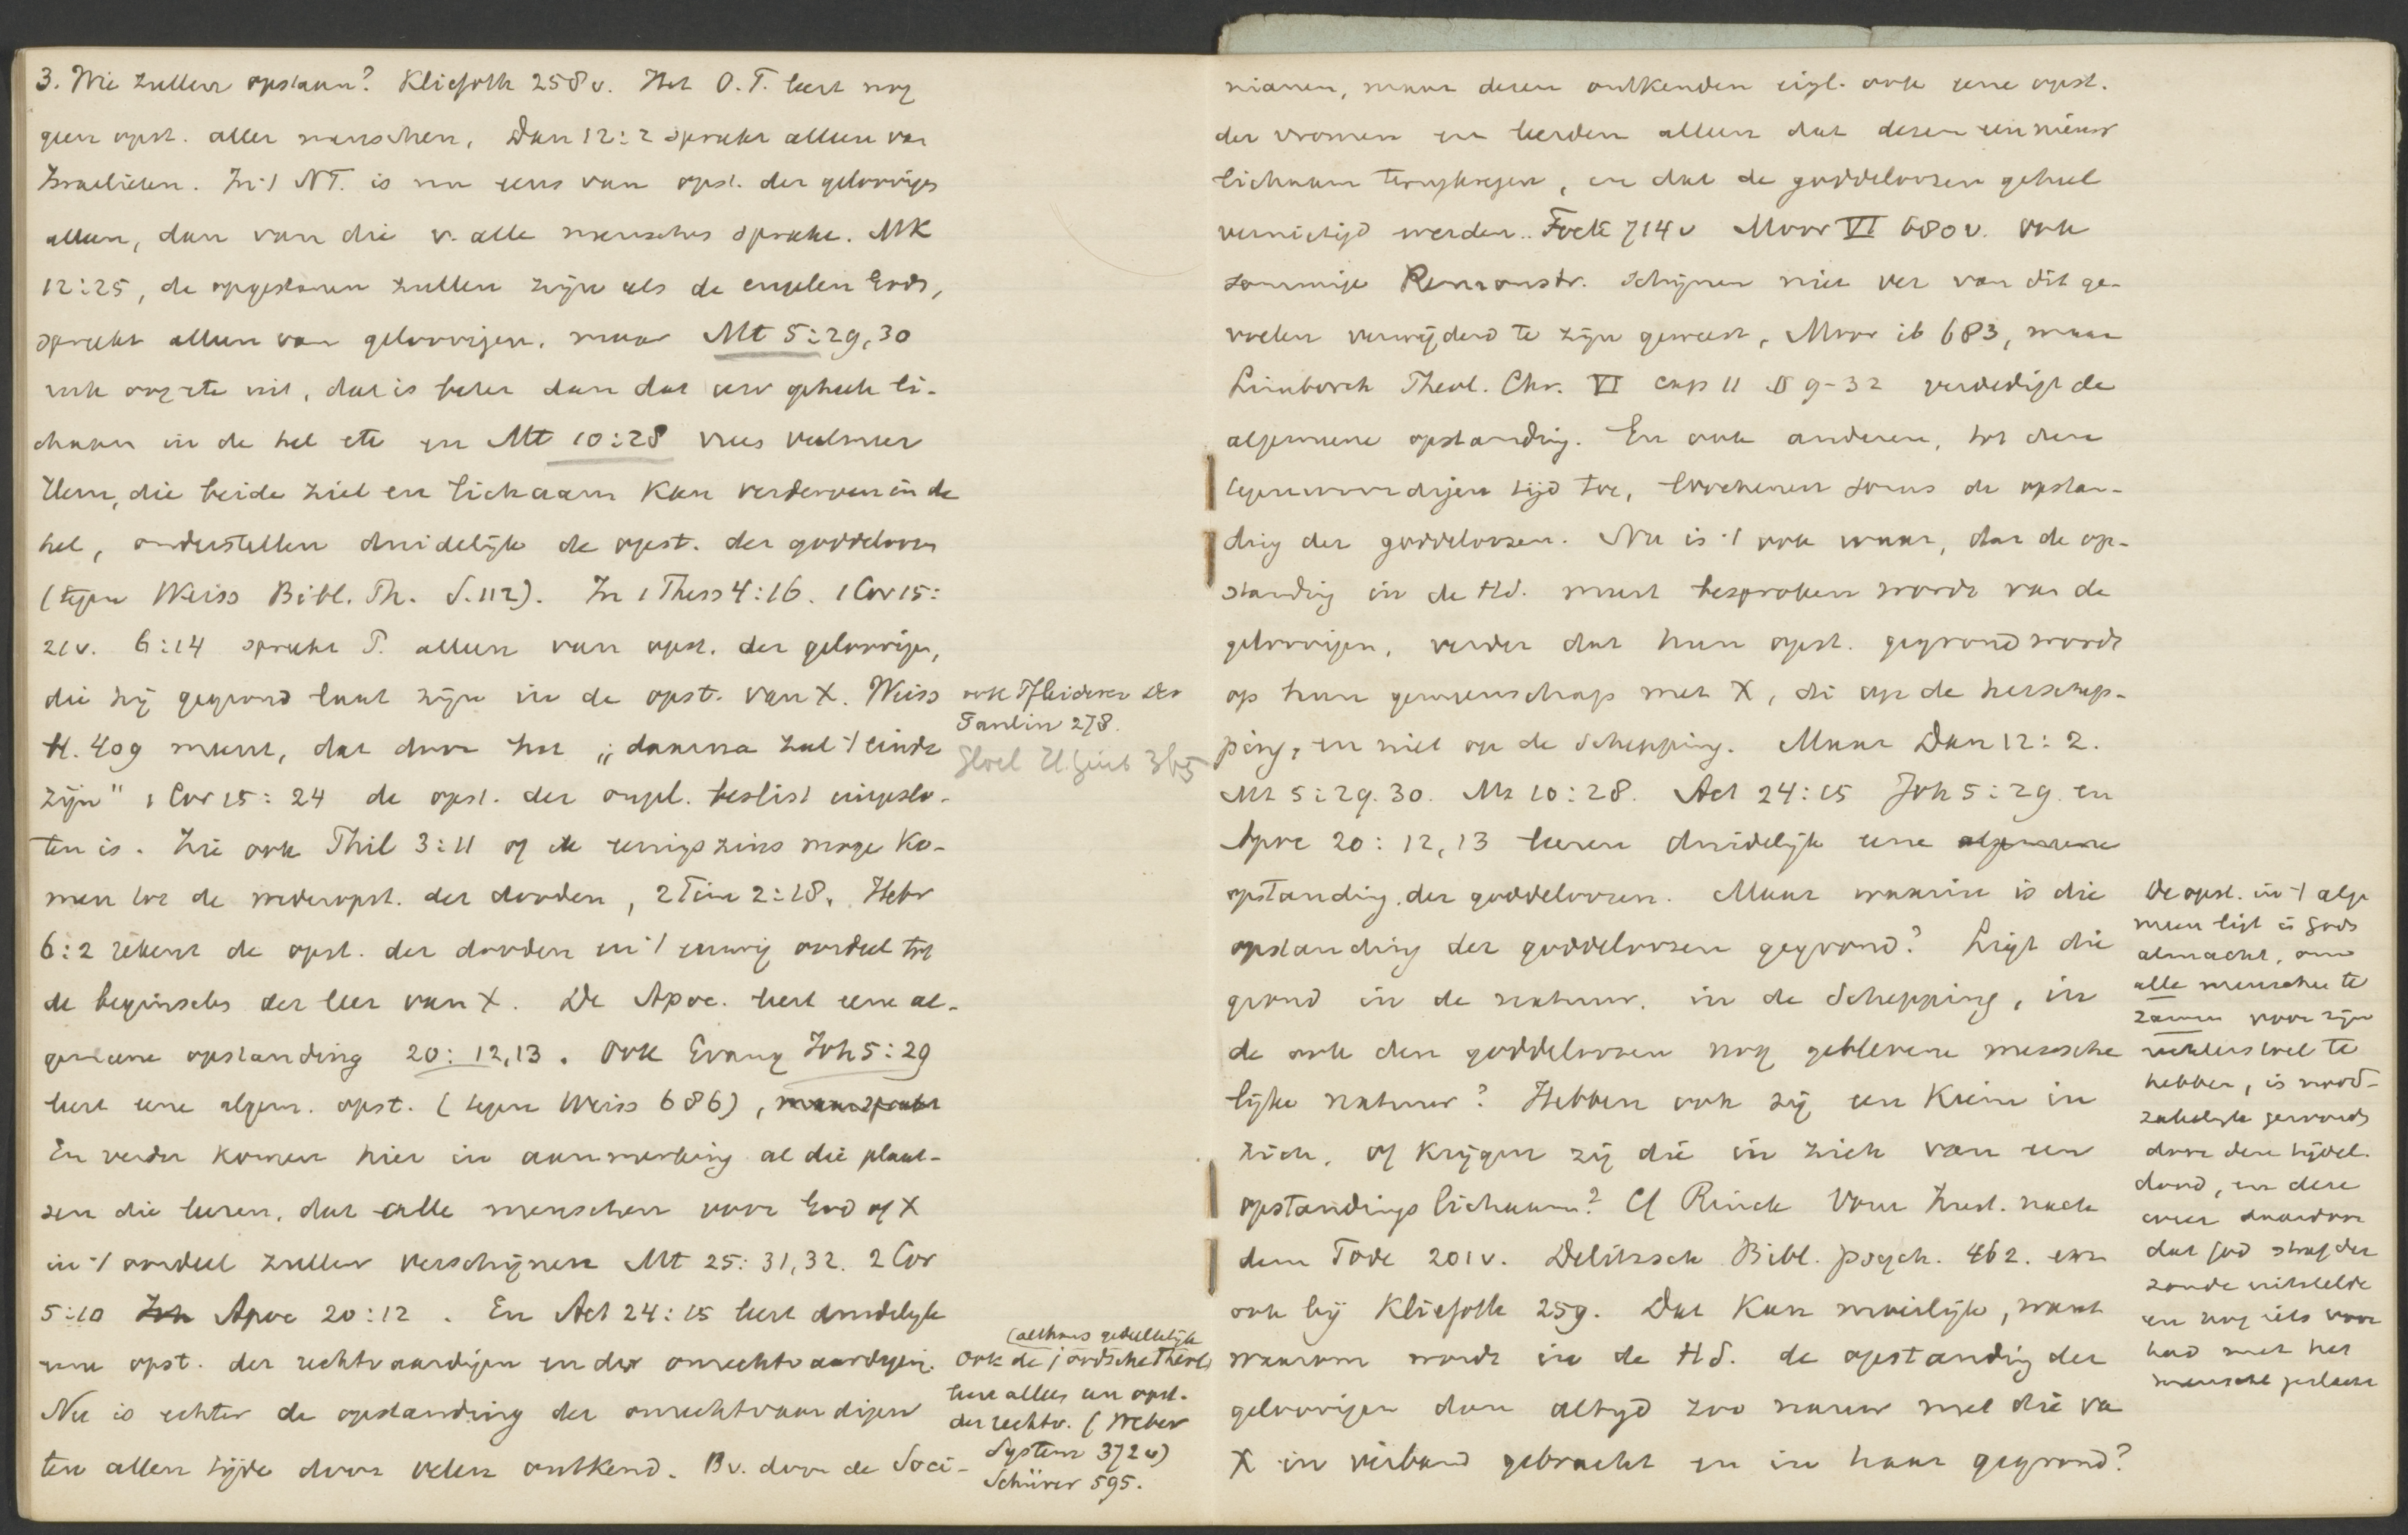 3. Wie zullen opstaan? Kliefoth 258v. Het O.T. leert nog
geen opst. aller menschen, Dan 12:2 spreekt alleen van
Israelieten. In 't NT. is nu eens van opst. der geloovigen
alleen, dan van die v. alle menschen sprake. MK
12:25, de opgestanen zullen zijn als de engelen Gods,
spreekt alleen van geloovigen, maar Mt 5:29,30
ruk oog etc uit, dat is beter dan dat uw geheele li-
chaam in de hel etc en Mt 10:28 vrees veelmeer
Hem, die beide ziel en lichaam kan verderven in de
hel, onderstellen duidelijk de opst. der goddeloozen
(tegen Weiss Bibl. Th. S. 112). In 1 Thess 4:16. 1 Cor 15:
21v. 6:14 spreekt P. alleen van opst. der geloovigen,
die hij gegrond laat zijn in de opst. van X. Weiss
bl. 409 meent, dat door het „daarna zal 't einde
zijn" 1 Cor 15:24 de opst. der ongel. beslist uitgeslo-
ten is. Zie ook Phil 3:11 of ik eenigszins moge ko-
men tot de wederopst. der dooden, 2 Tim 2:18. Hebr
6:2 rekent de opst. der dooden en 't eeuwig oordeel tot
de beginselen der leer van X. De Apoc. leert eene al-
gemeene opstanding 20:12,13. Ook Evang Joh 5:29
leert eene algem. opst. (tegen Weiss 686), maar spreekt
En verder komen hier in aanmerking al die plaat-
sen die leeren, dat alle menschen voor God of X
in 't oordeel zullen verschijnen Mt 25:31,32. 2 Cor
5:10 Joh Apoc 20:12. En Act 24:15 leert duidelijk
eene opst. der rechtvaardigen en der onrechtvaardigen.
Nu is echter de opstanding der onrechtvaardigen
ten allen tijde door velen ontkend. Bv. door de Soci-
ook Pfleiderer Der
Paulin 278.
(althans gedeeltelijk
Ook de joodsche Theol.
leert alleen een opst.
der rechtv. (Weber
System 372v)
Schürer 595.
nianen, maar dezen ontkenden eigl. ook eene opst.
der vromen en leerden alleen dat dezen een nieuw
lichaam terugkregen, en dat de goddeloozen geheel
vernietigd werden. Fock 714v Moor VI 680v. Ook
sommige Remonstr. schijnen niet ver van dit ge-
voelen verwijderd te zijn geweest, Moor ib 683, maar
Limborch Theol. Chr. VI cap 11 § 9-32 verdedigt de
algemeene opstanding. En ook anderen, tot den
tegenwoordigen tijd toe, loochenen soms de opstan-
ding der goddeloozen. Nu is 't ook waar, dat de op-
standing in de HS. meest besproken wordt van de
geloovigen, verder dat hun opst. gegrond wordt
op hun gemeenschap met X, di op de herschep-
ping, en niet op de schepping. Maar Dan 12:2.
Mt 5:29.30. Mt 10:28. Act 24:15 Joh 5:29. en
Apoc 20:12,13 leeren duidelijk eene algemeene
opstanding der goddeloozen. Maar waarin is die
opstanding der goddeloozen gegrond? Ligt die
grond in de natuur, in de schepping, in
de ook den goddeloozen nog gebleven menschе
lijke natuur? Hebben ook zij een kiem in
zich, of krijgen zij die in zich van een
opstandingslichaam? Cf Rinck Vom Zust. nach
dem Tode 201v. Delitzsch Bibl. Psych. 462. enz
ook bij Kliefoth 259. Dat kan moeilijk, want
waarom wordt in de HS. de opstanding der
geloovigen dan altijd zoo nauw met die van
X in verband gebracht en in haar gegrond?
De opst. in 't alge
meen ligt in Gods
almacht, om
alle menschen te
zamen voor zijn
rechterstoel te
hebben, is nood-
zakelijk geworden
door den tijdel.
dood, en deze
weer daardoor
dat God straf der
zonde uitstelde
en nog iets voor
had met het
menschel geslacht